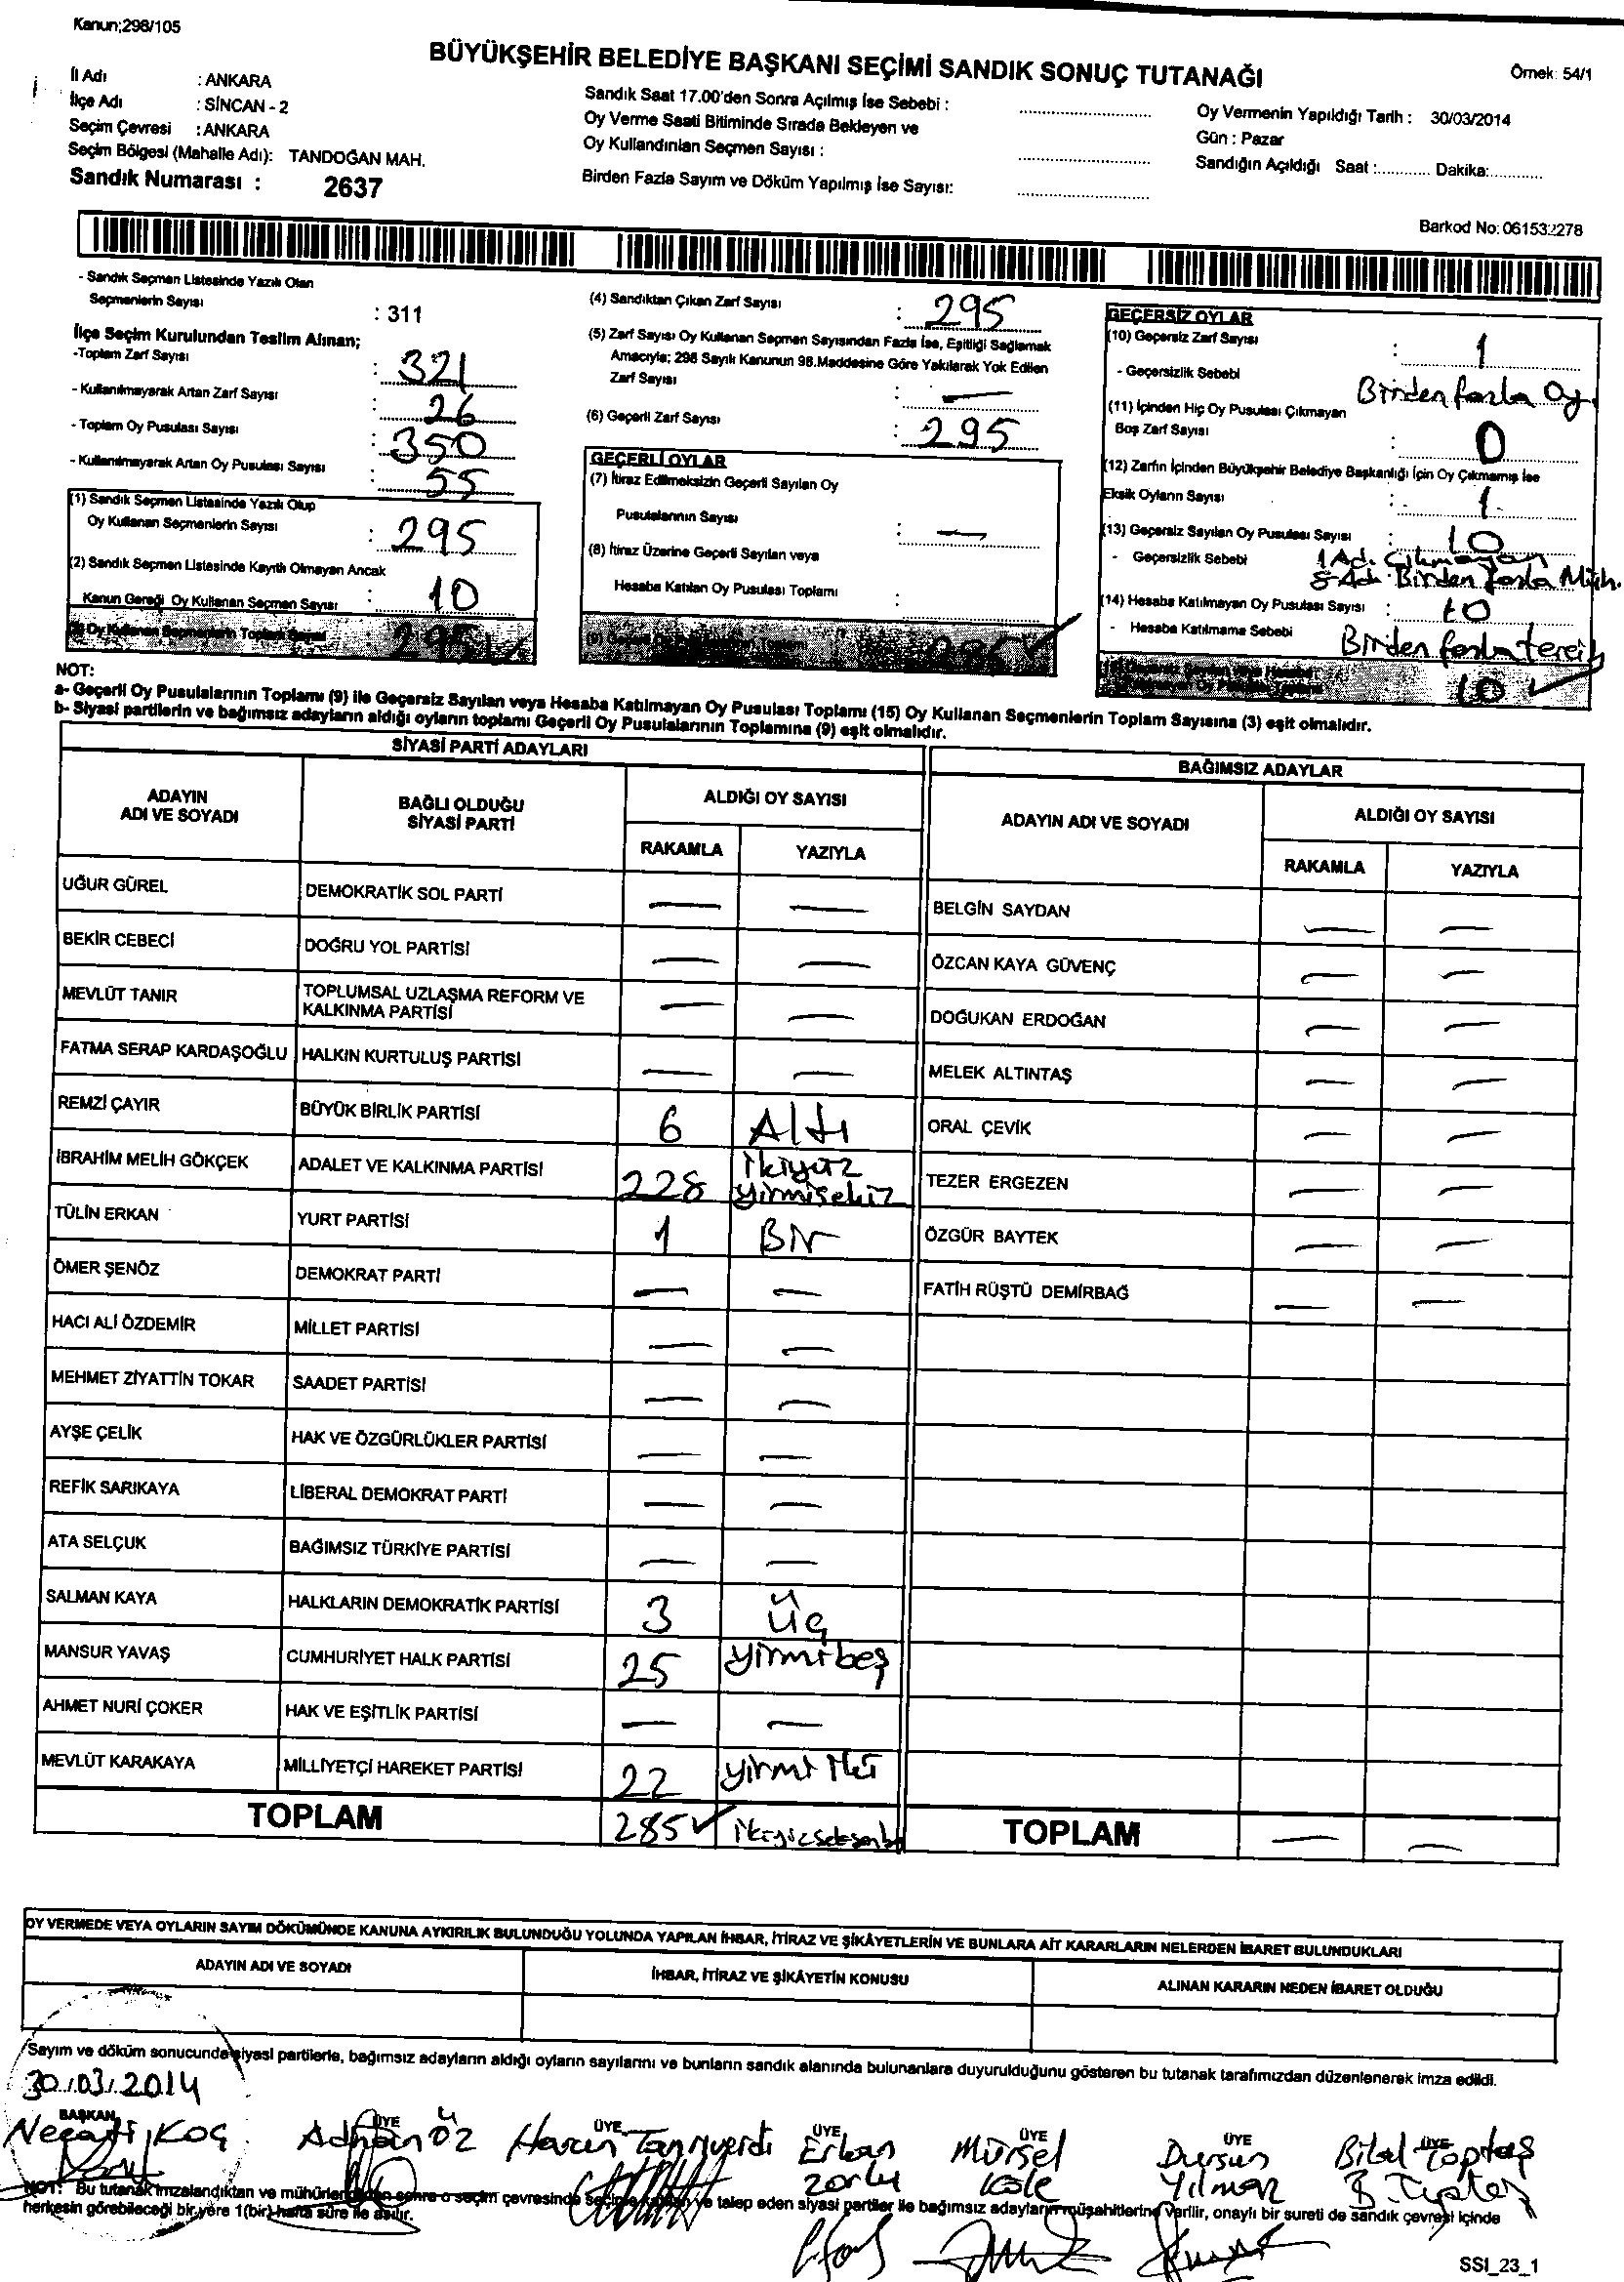 Kanun;298/105
BÜYÜKŞEHİR BELEDİYE BAŞKANI SEÇİMİ SANDIK SONUÇ TUTANAĞI
Örnek: 54/1
İl Adı : ANKARA
İlçe Adı : SİNCAN - 2
Seçim Çevresi : ANKARA
Seçim Bölgesi (Mahalle Adı): TANDOĞAN MAH.
Sandık Numarası : 2637
Sandık Saat 17.00'den Sonra Açılmış İse Sebebi :
Oy Verme Saati Bitiminde Sırada Bekleyen ve
Oy Kullandırılan Seçmen Sayısı :
Birden Fazla Sayım ve Döküm Yapılmış İse Sayısı:
Oy Vermenin Yapıldığı Tarih : 30/03/2014
Gün : Pazar
Sandığın Açıldığı Saat :............ Dakika:............
Barkod No: 061532278
- Sandık Seçmen Listesinde Yazılı Olan
Seçmenlerin Sayısı : 311
İlçe Seçim Kurulundan Teslim Alınan;
-Toplam Zarf Sayısı : 321
- Kullanılmayarak Artan Zarf Sayısı : 26
- Toplam Oy Pusulası Sayısı : 350
- Kullanılmayarak Artan Oy Pusulası Sayısı : 55
(1) Sandık Seçmen Listesinde Yazılı Olup
Oy Kullanan Seçmenlerin Sayısı : 295
(2) Sandık Seçmen Listesinde Kayıtlı Olmayan Ancak
Kanun Gereği Oy Kullanan Seçmen Sayısı : 10
(3) Oy Kullanan Seçmenlerin Toplam Sayısı : 295
(4) Sandıktan Çıkan Zarf Sayısı : 295
(5) Zarf Sayısı Oy Kullanan Seçmen Sayısından Fazla İse, Eşitliği Sağlamak
Amacıyla; 298 Sayılı Kanunun 98.Maddesine Göre Yakılarak Yok Edilen
Zarf Sayısı : —
(6) Geçerli Zarf Sayısı : 295
GEÇERLİ OYLAR
(7) İtiraz Edilmeksizin Geçerli Sayılan Oy
Pusulalarının Sayısı : —
(8) İtiraz Üzerine Geçerli Sayılan veya
Hesaba Katılan Oy Pusulası Toplamı :
(9) Geçerli Oy Toplamı 285
GEÇERSİZ OYLAR
(10) Geçersiz Zarf Sayısı : 1
- Geçersizlik Sebebi Birden fazla Oy.
(11) İçinden Hiç Oy Pusulası Çıkmayan
Boş Zarf Sayısı : 0
(12) Zarfın İçinden Büyükşehir Belediye Başkanlığı İçin Oy Çıkmamış İse
Eksik Oyların Sayısı : 1
(13) Geçersiz Sayılan Oy Pusulası Sayısı : 10
- Geçersizlik Sebebi 1 Ad. Çıkmayan
8 Ad. Birden fazla Müh.
(14) Hesaba Katılmayan Oy Pusulası Sayısı : 10
- Hesaba Katılmama Sebebi Birden fazla tercih
(15) Geçersiz Sayılan veya Hesaba
Katılmayan Oy Pusulası Toplamı 10
NOT:
a- Geçerli Oy Pusulalarının Toplamı (9) ile Geçersiz Sayılan veya Hesaba Katılmayan Oy Pusulası Toplamı (15) Oy Kullanan Seçmenlerin Toplam Sayısına (3) eşit olmalıdır.
b- Siyasi partilerin ve bağımsız adayların aldığı oyların toplamı Geçerli Oy Pusulalarının Toplamına (9) eşit olmalıdır.
SİYASİ PARTİ ADAYLARI
ADAYIN
ADI VE SOYADI
BAĞLI OLDUĞU
SİYASİ PARTİ
ALDIĞI OY SAYISI
RAKAMLA YAZIYLA
UĞUR GÜREL DEMOKRATİK SOL PARTİ — —
BEKİR CEBECİ DOĞRU YOL PARTİSİ — —
MEVLÜT TANIR TOPLUMSAL UZLAŞMA REFORM VE
KALKINMA PARTİSİ — —
FATMA SERAP KARDAŞOĞLU HALKIN KURTULUŞ PARTİSİ — —
REMZİ ÇAYIR BÜYÜK BİRLİK PARTİSİ 6 Altı
İBRAHİM MELİH GÖKÇEK ADALET VE KALKINMA PARTİSİ 228 ikiyüz
yirmisekiz
TÜLİN ERKAN YURT PARTİSİ 1 Bir
ÖMER ŞENÖZ DEMOKRAT PARTİ — —
HACI ALİ ÖZDEMİR MİLLET PARTİSİ — —
MEHMET ZİYATTİN TOKAR SAADET PARTİSİ — —
AYŞE ÇELİK HAK VE ÖZGÜRLÜKLER PARTİSİ — —
REFİK SARIKAYA LİBERAL DEMOKRAT PARTİ — —
ATA SELÇUK BAĞIMSIZ TÜRKİYE PARTİSİ — —
SALMAN KAYA HALKLARIN DEMOKRATİK PARTİSİ 3 Üç
MANSUR YAVAŞ CUMHURİYET HALK PARTİSİ 25 yirmibeş
AHMET NURİ ÇOKER HAK VE EŞİTLİK PARTİSİ — —
MEVLÜT KARAKAYA MİLLİYETÇİ HAREKET PARTİSİ 22 yirmi iki
TOPLAM 285
BAĞIMSIZ ADAYLAR
ADAYIN ADI VE SOYADI
ALDIĞI OY SAYISI
RAKAMLA YAZIYLA
BELGİN SAYDAN — —
ÖZCAN KAYA GÜVENÇ — —
DOĞUKAN ERDOĞAN — —
MELEK ALTINTAŞ — —
ORAL ÇEVİK — —
TEZER ERGEZEN — —
ÖZGÜR BAYTEK — —
FATİH RÜŞTÜ DEMİRBAĞ — —
TOPLAM — —
OY VERMEDE VEYA OYLARIN SAYIM DÖKÜMÜNDE KANUNA AYKIRILIK BULUNDUĞU YOLUNDA YAPILAN İHBAR, İTİRAZ VE ŞİKÂYETLERİN VE BUNLARA AİT KARARLARIN NELERDEN İBARET BULUNDUKLARI
ADAYIN ADI VE SOYADI İHBAR, İTİRAZ VE ŞİKÂYETİN KONUSU ALINAN KARARIN NEDEN İBARET OLDUĞU
Sayım ve döküm sonucunda siyasi partilerle, bağımsız adayların aldığı oyların sayılarını ve bunların sandık alanında bulunanlara duyurulduğunu gösteren bu tutanak tarafımızdan düzenlenerek imza edildi.
30.03.2014
BAŞKAN ÜYE ÜYE ÜYE ÜYE ÜYE ÜYE
Necati Koç Adnan Öz Harun Tanrıverdi Erkan Mürsel Dursun Bilal Toptaş
Zorlu Köle Yılmaz
NOT: Bu tutanak imzalandıktan ve mühürlendikten sonra o seçim çevresinde seçime katılan ve talep eden siyasi partiler ile bağımsız adayların müşahitlerine verilir, onaylı bir sureti de sandık çevresi içinde
herkesin görebileceği bir yere 1(bir) hafta süre ile asılır.
SSI_23_1